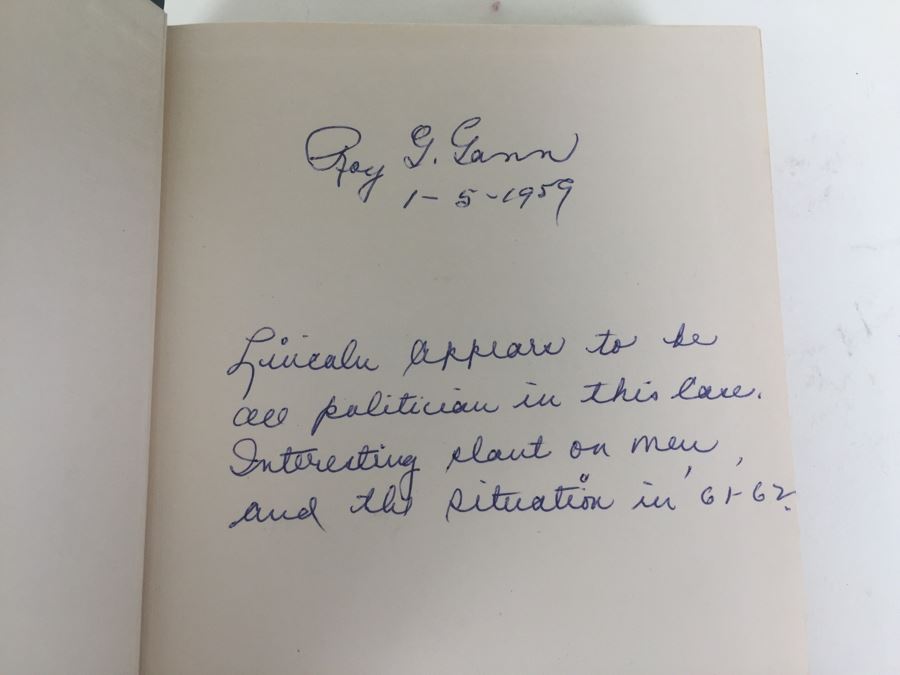 Roy G. Gann
1-5-1959
Lincoln appears to be
all politician in this case.
Interesting slant on men
and the situation in '61-'62.